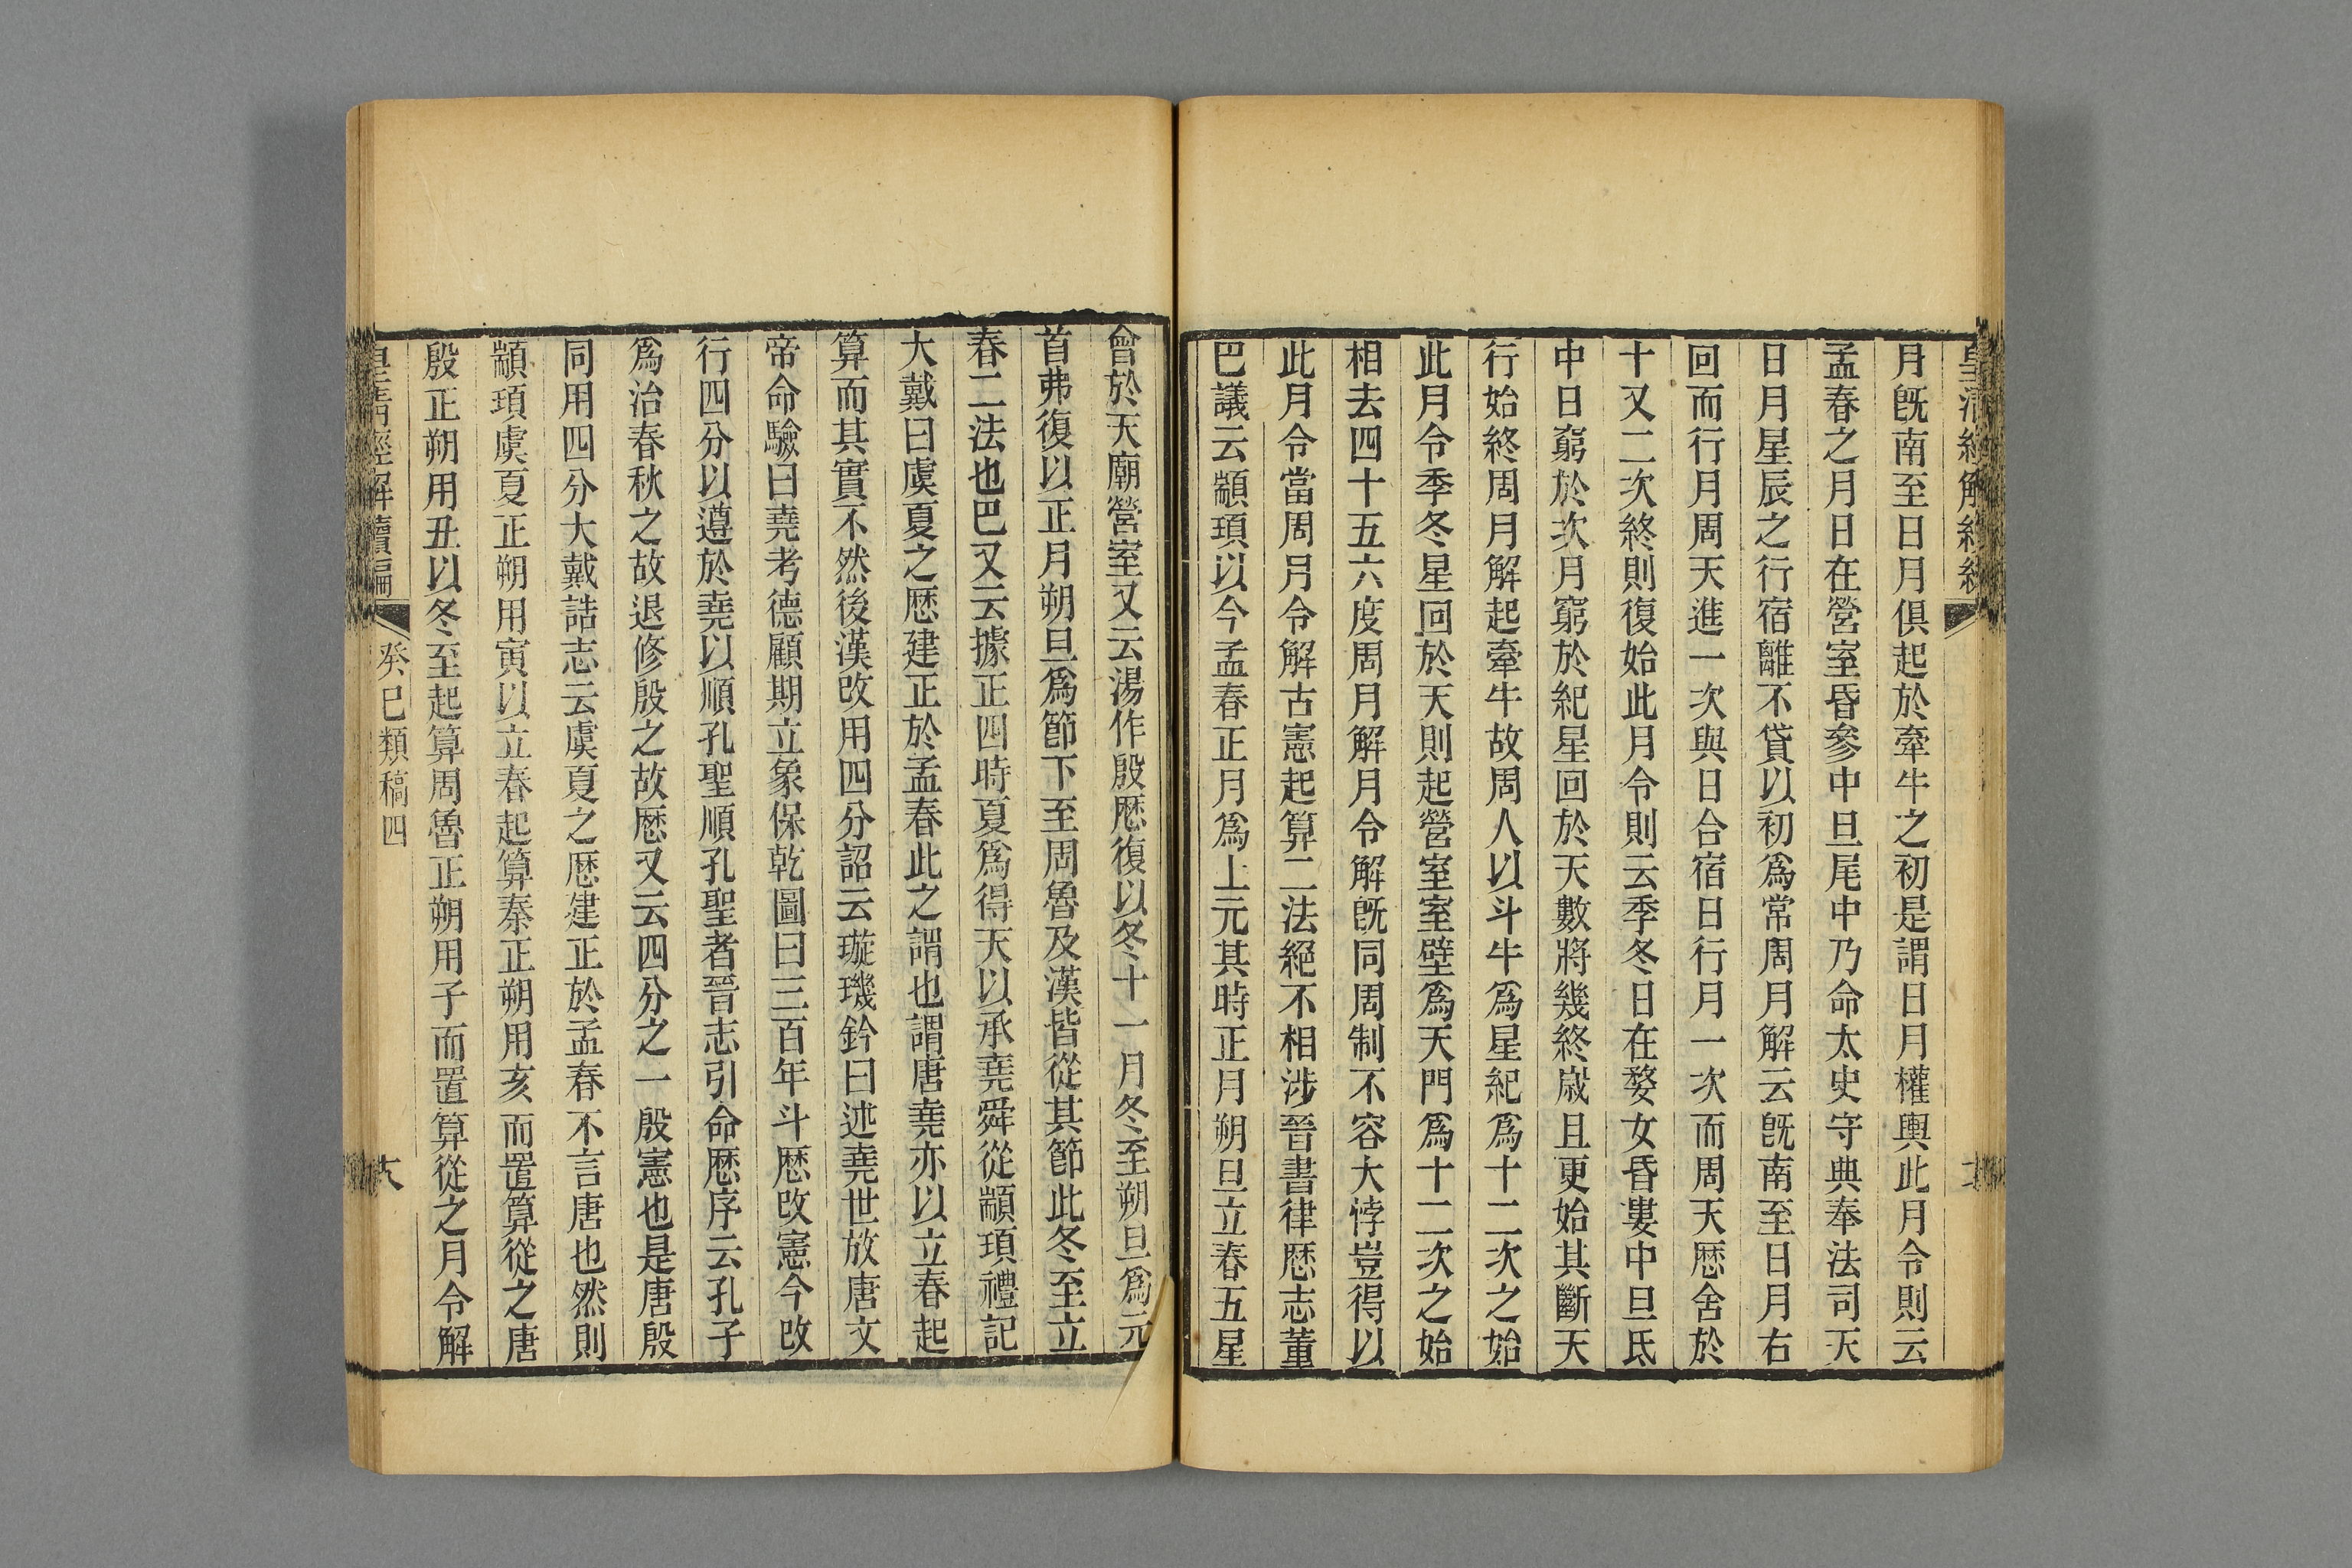 月旣南至日月俱起於牽牛之初是謂日月權輿此月令則云
孟春之月日在營室昏參中旦尾中乃命太史守典奉法司天
日月星辰之行宿離不貸以初爲常周月解云旣南至日月右
回而行月周天進一次與日合宿日行月一次而周天厯舍於
十又二次終則復始此月令則云季冬日在婺女昏婁中旦氐
中日窮於次月窮於紀星回於天數將幾終歲且更始其斷天
行始終周月解起牽牛故周人以斗牛爲星紀爲十二次之始
此月令季冬星回於天則起營室室壁爲天門爲十二次之始
相去四十五六度周月解月令解旣同周制不容大悖豈得以
此月令當周月令解古憲起算二法絕不相涉晉書律厯志董
巴議云顓頊以今孟春正月爲上元其時正月朔旦立春五星
會於天廟營室又云湯作殷厯復以冬十一月冬至朔旦爲元
首弗復以正月朔旦爲節下至周魯及漢皆從其節此冬至立
春二法也巴又云據正四時夏爲得天以承堯舜從顓頊禮記
大戴曰虞夏之厯建正於孟春此之謂也謂唐堯亦以立春起
算而其實不然後漢改用四分詔云璇璣鈐曰述堯世放唐文
帝命驗曰堯考德顧期立象保乾圖曰三百年斗厯改憲今改
行四分以遵於堯以順孔聖順孔聖者晉志引命厯序云孔子
爲治春秋之故退修殷之故厯又云四分之一殷憲也是唐殷
同用四分大戴誥志云虞夏之厯建正於孟春不言唐也然則
顓頊虞夏正朔用寅以立春起算秦正朔用亥而置算從之唐
殷正朔用丑以冬至起算周魯正朔用子而置算從之月令解
皇清經解續編
癸巳類稿四
六